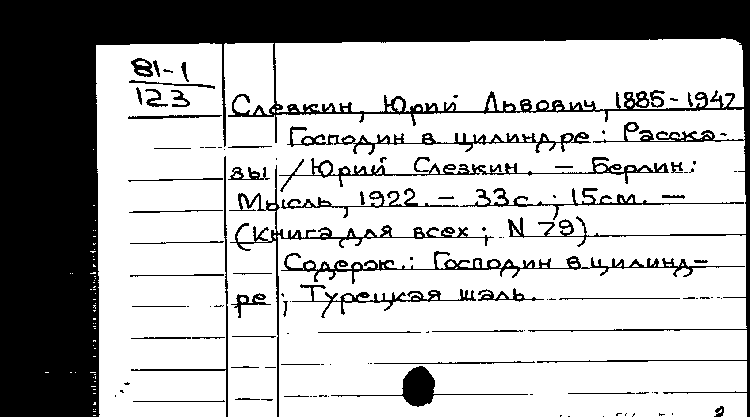 81-1
123
Слезкин, Юрий Львович, 1885-1947
Господин в цилиндре: Расска-
зы / Юрий Слезкин. — Берлин:
Мысль, 1922. — 33с.; 15см. —
(Книга для всех; N 79).
Содерж.: Господин в цилинд-
ре; Турецкая шаль.